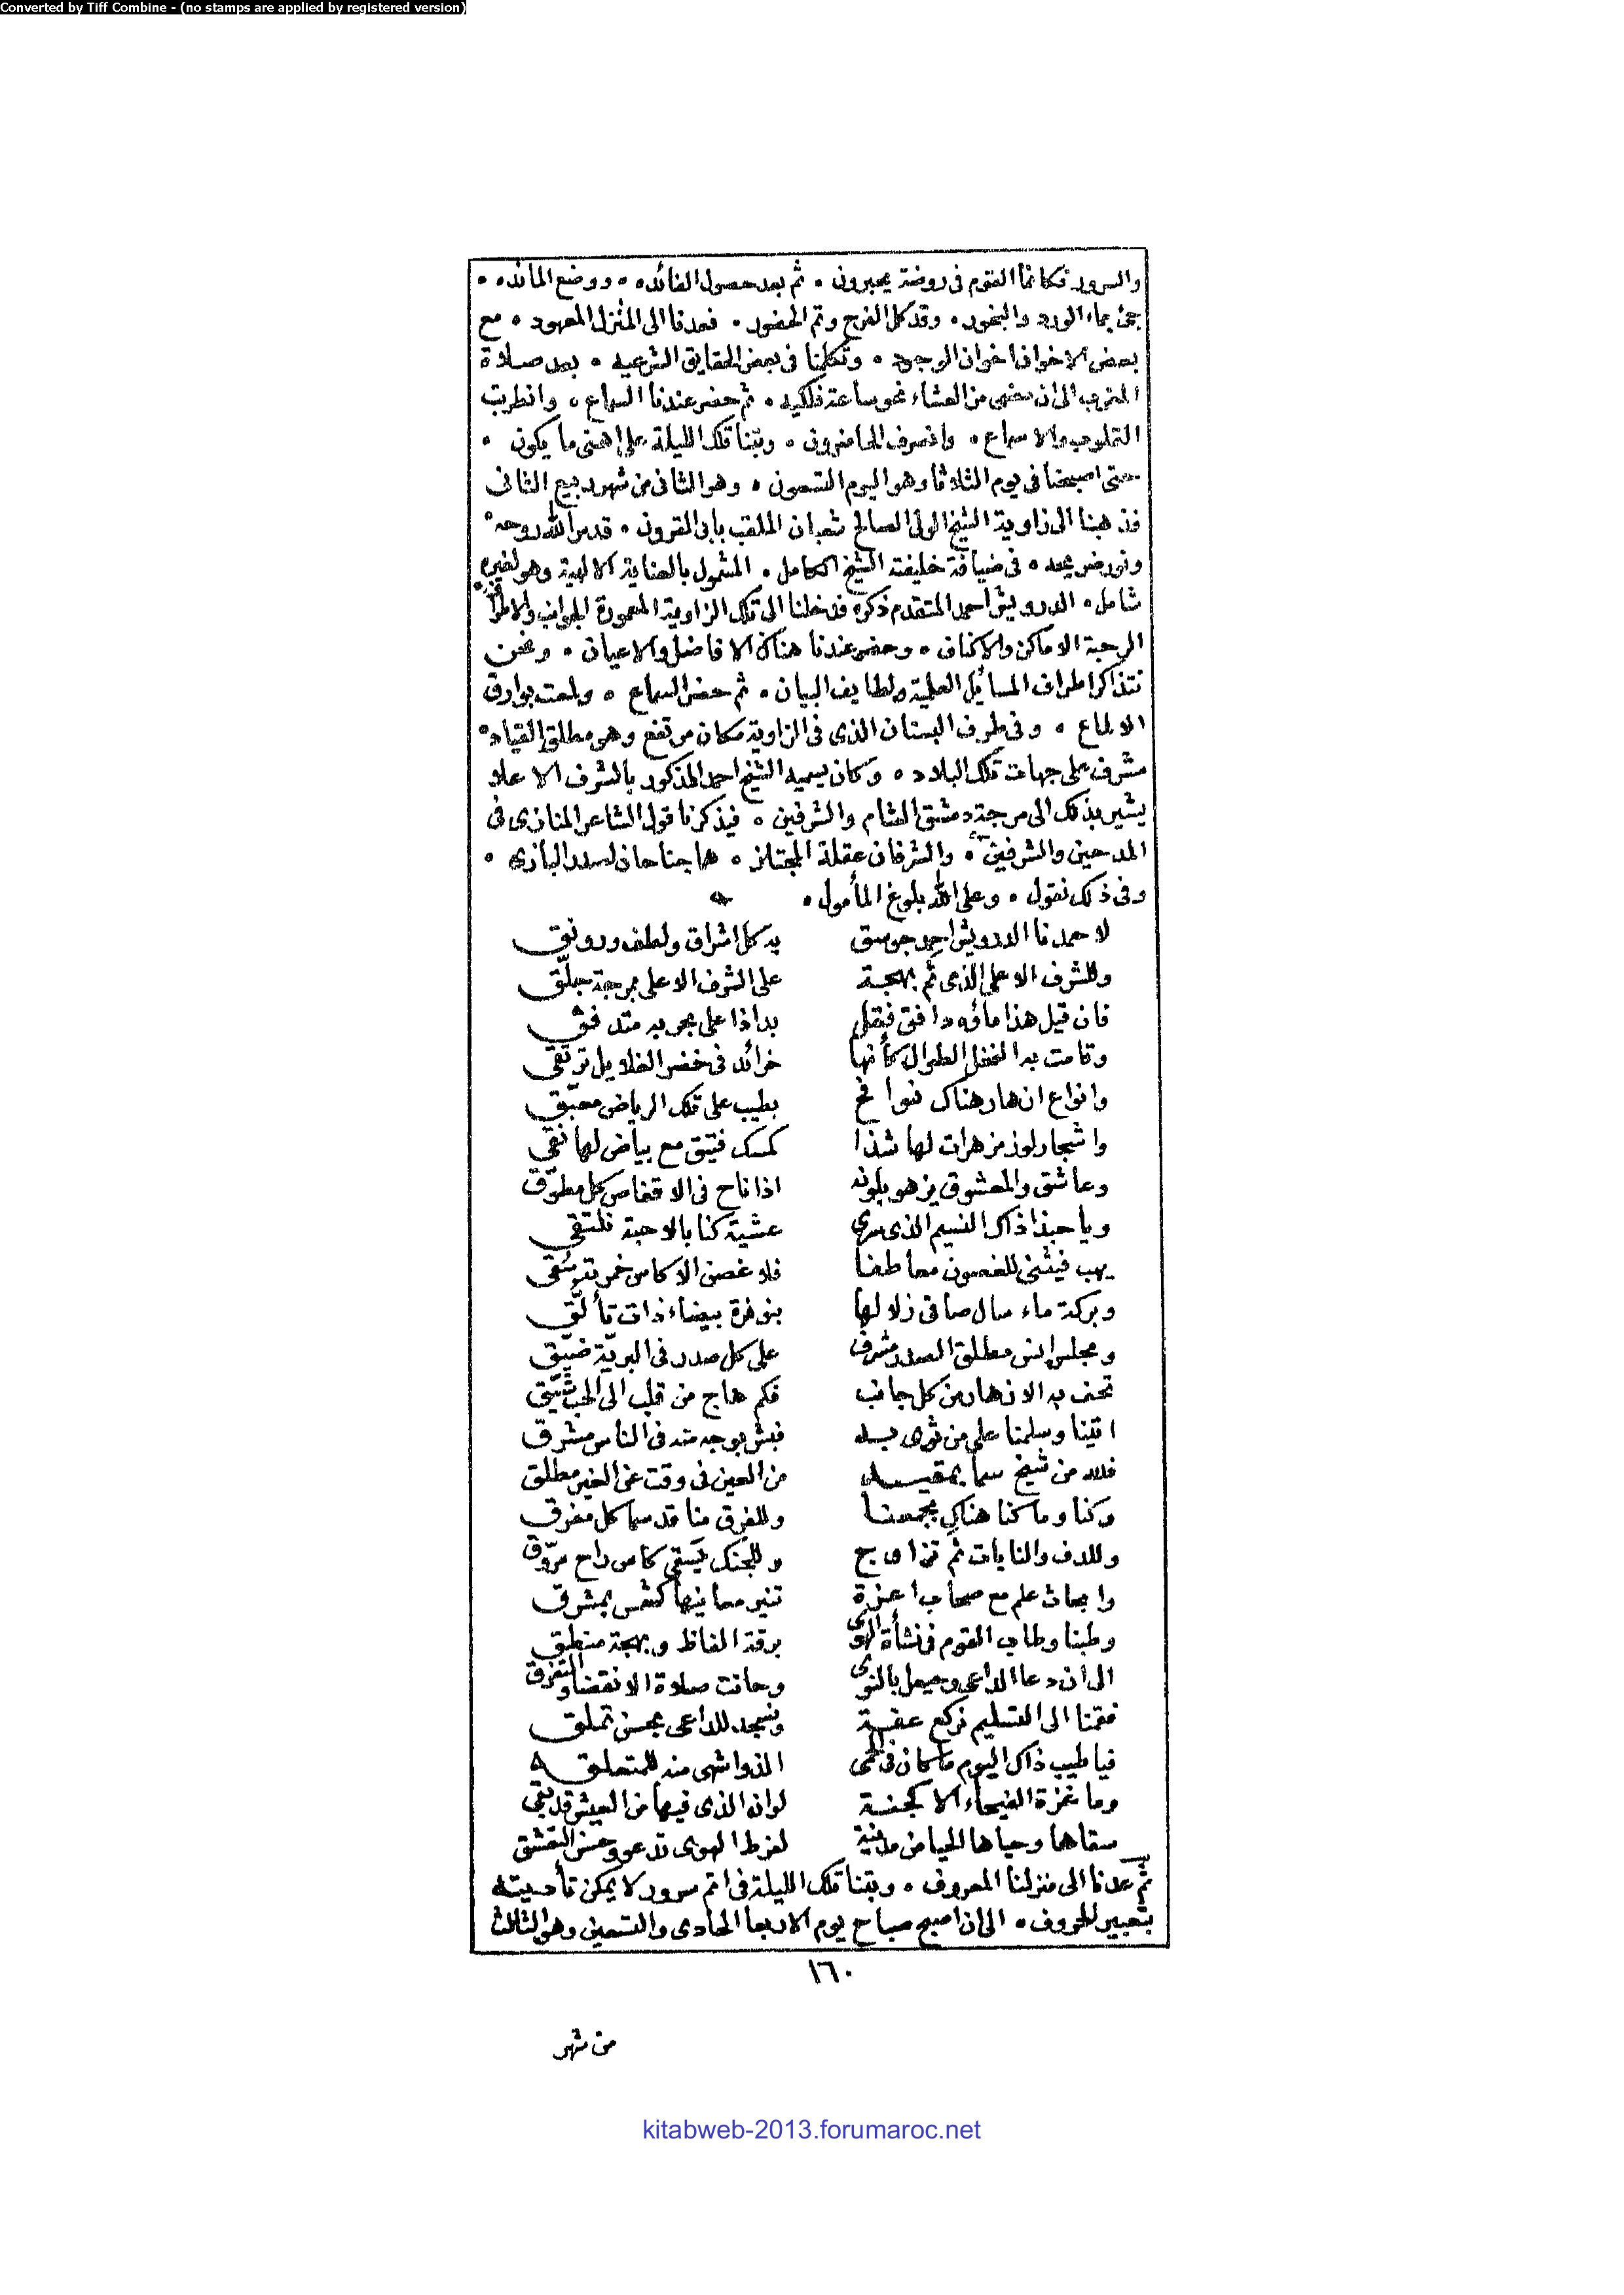 Converted by Tiff Combine - (no stamps are applied by registered version)
والسرور فكانما القوم فى روضة يحبرون • ثم بعد حصول الفائده • ووضع المائده •
جئ بماء الورد والبخور • وقد كل الفرج وتم الحضور • فعدنا الى المنزل المعهود • مع
بعض الاخوان اخوان الوجود • وتكلمنا فى بعض الحقايق الشرعيه • بعد صلاة
المغرب الى ان مضى من العشاء نحو ساعة فلكيه • ثم حضر عندنا السماع • وانطربت
القلوب والاسماع • وانصرف الحاضرون • وبتنا تلك الليلة على اهنى ما يكون •
حتى اصبحنا فى يوم الثلاثا وهو اليوم التسعون • وهو الثانى من شهر ربيع الثانى
فذهبنا الى زاوية الشيخ الولى الصالح شعبان الملقب بابى القرون • قدس الله روحه •
ونور ضريحه • فى ضيافة خليفته الشيخ الكامل • المشمول بالعناية الالهية وهو لغيره
شامل • الدرويش احمد المتقدم ذكره فدخلنا الى تلك الزاوية المعمورة الجوانب والاطراف
الرحبة الاماكن والاكناف • وحضر عندنا هناك الافاضل والاعيان • ونحن
نتذاكر اطراف المسائل العلمية ولطايف البيان • ثم حضر السماع • ولمعت بوارق
الالماع • وفى طرف البستان الذى فى الزاوية مكان مرتفع وهو مطلق القياد •
مشرف على جهات تلك البلاد • وكان يسميه الشيخ احمد المذكور بالشرف الاعلا
يشير بذلك الى مرجة دمشق الشام والشرفين • فيذكرنا قول الشاعر المنازى فى
المدحين والشرفين • والشرفان عقلة المجتاز • هما جناحان لصدر البازى •
وفى ذلك نقول • وعلى الله بلوغ المأمول •
لاحمدنا الدرويش احمد جوسق به كل اشراق ولطف ورونق
وللشرف الاعلى الذى ثم بهجة على الشرف الاعلى بمرجة جلّق
فان قيل هذا ماؤه دافق فقل بداذا على مجر به متدفق
وقامت به النخل الطوال كأنها خرائد فى خضر الغلايل ترتقى
وانواع ازهار هناك فوائح بطيب على تلك الرياض معبّق
واشجار لوز مزهرات لها شذا كمسك فتيق مع بياض لها نقى
وعاشق والمعشوق يزهو بلونه اذا ناح فى الاقفاص كل مطوّق
ويا حبذا ذاك النسيم الذى سرى عشية كنا بالاحبة نلتقى
يهب فيثنى للغصون معاطفا فلا غصن الا كاس خمر به سُقى
وبركة ماء سال صافى زلالها بنوفرة بيضاء ذات تألّق
ومجلس انس مطلق الصدر مشرف على كل صدر فى البريّة ضيّق
تحف به الازهار من كل جانب فكم هاج من قلب الى الحب شيّق
اتينا وسلمنا على من ثوى به فبش بوجه منه فى الناس مشرق
فلله من شيخ سما بمقيده من العين فى وقت عن الغير مطلق
وكنا وما كنا هناك بجمعنا وللفرق منا قد سما كل مفرق
وللدف والنايات ثم تزاوج وللجنك يَسقى كاس راح مروّق
وابحاث علم مع صحاب اعزة تنير معانيها كشمس بمشرق
وطبنا وطاب القوم فى نشأة الهوى برقة الفاظ وبهجة منطق
الى ان دعا الداعى وحيعل بالنوى وحانت صلاة الانقضا والتفرق
فقمنا الى التسليم نركع عفة ونسجد للداعى بحسن تملق
فيا طيب ذاك اليوم ما كان فى الحمى الذ واشهى منه للمتعلق
وما غزة الفيحاء الا كجنة لو ان الذى فيها من العيش قد بقى
سقاها وحياها الحيا من مدينة لفرط الهوى تدعو وحسن التعشق
ثم عدنا الى منزلنا المعروف • وبتنا تلك الليلة فى اتم سرور لا يمكن تأديته
بتعبير الحروف • الى ان اصبح صباح يوم الاربعا الحادى والتسعين وهو الثالث
١٦٠
من شهر
kitabweb-2013.forumaroc.net